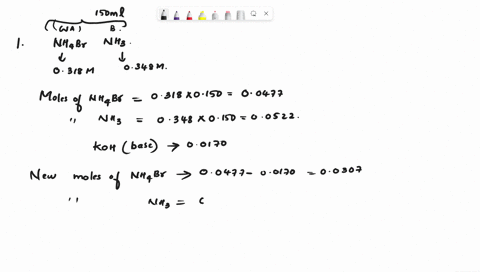 150ml
(WA) B.
1. NH4Br NH3.
↓ ↓
0.318 M 0.348 M.
Moles of NH4Br = 0.318 x 0.150 = 0.0477
" NH3 = 0.348 x 0.150 = 0.0522.
KOH (base) → 0.0170
New moles of NH4Br → 0.0477 - 0.0170 = 0.0307
" NH3 = 0